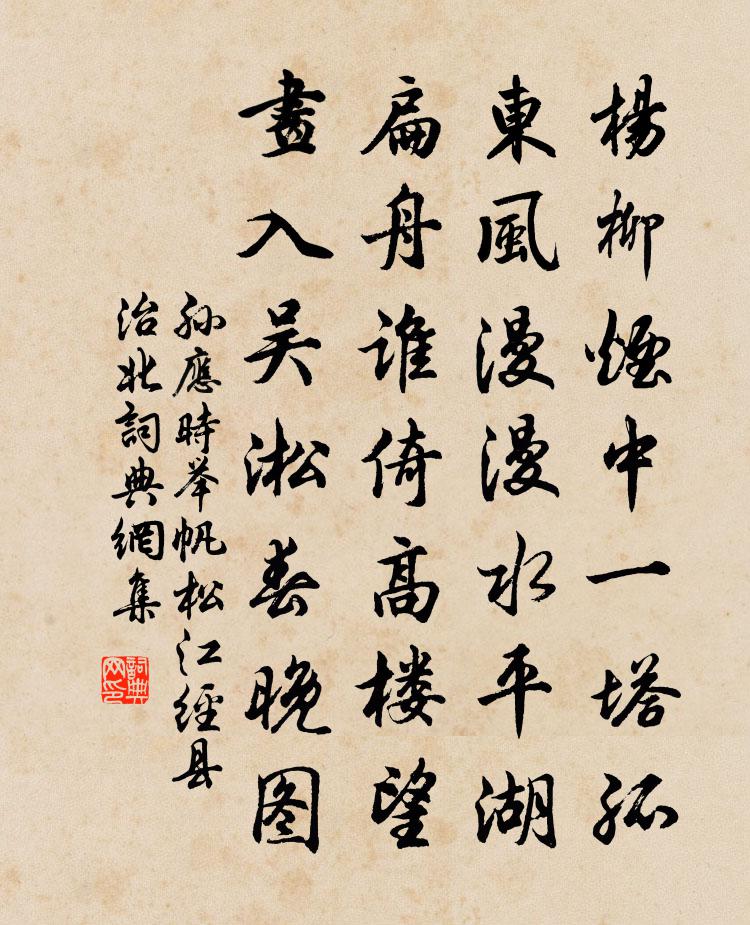 楊柳煙中一塔孤
東風漫漫水平湖
扁舟誰倚高楼望
畫入吴淞春晚图
孙應時举帆松江經县
治北詞典網集
詞典网印